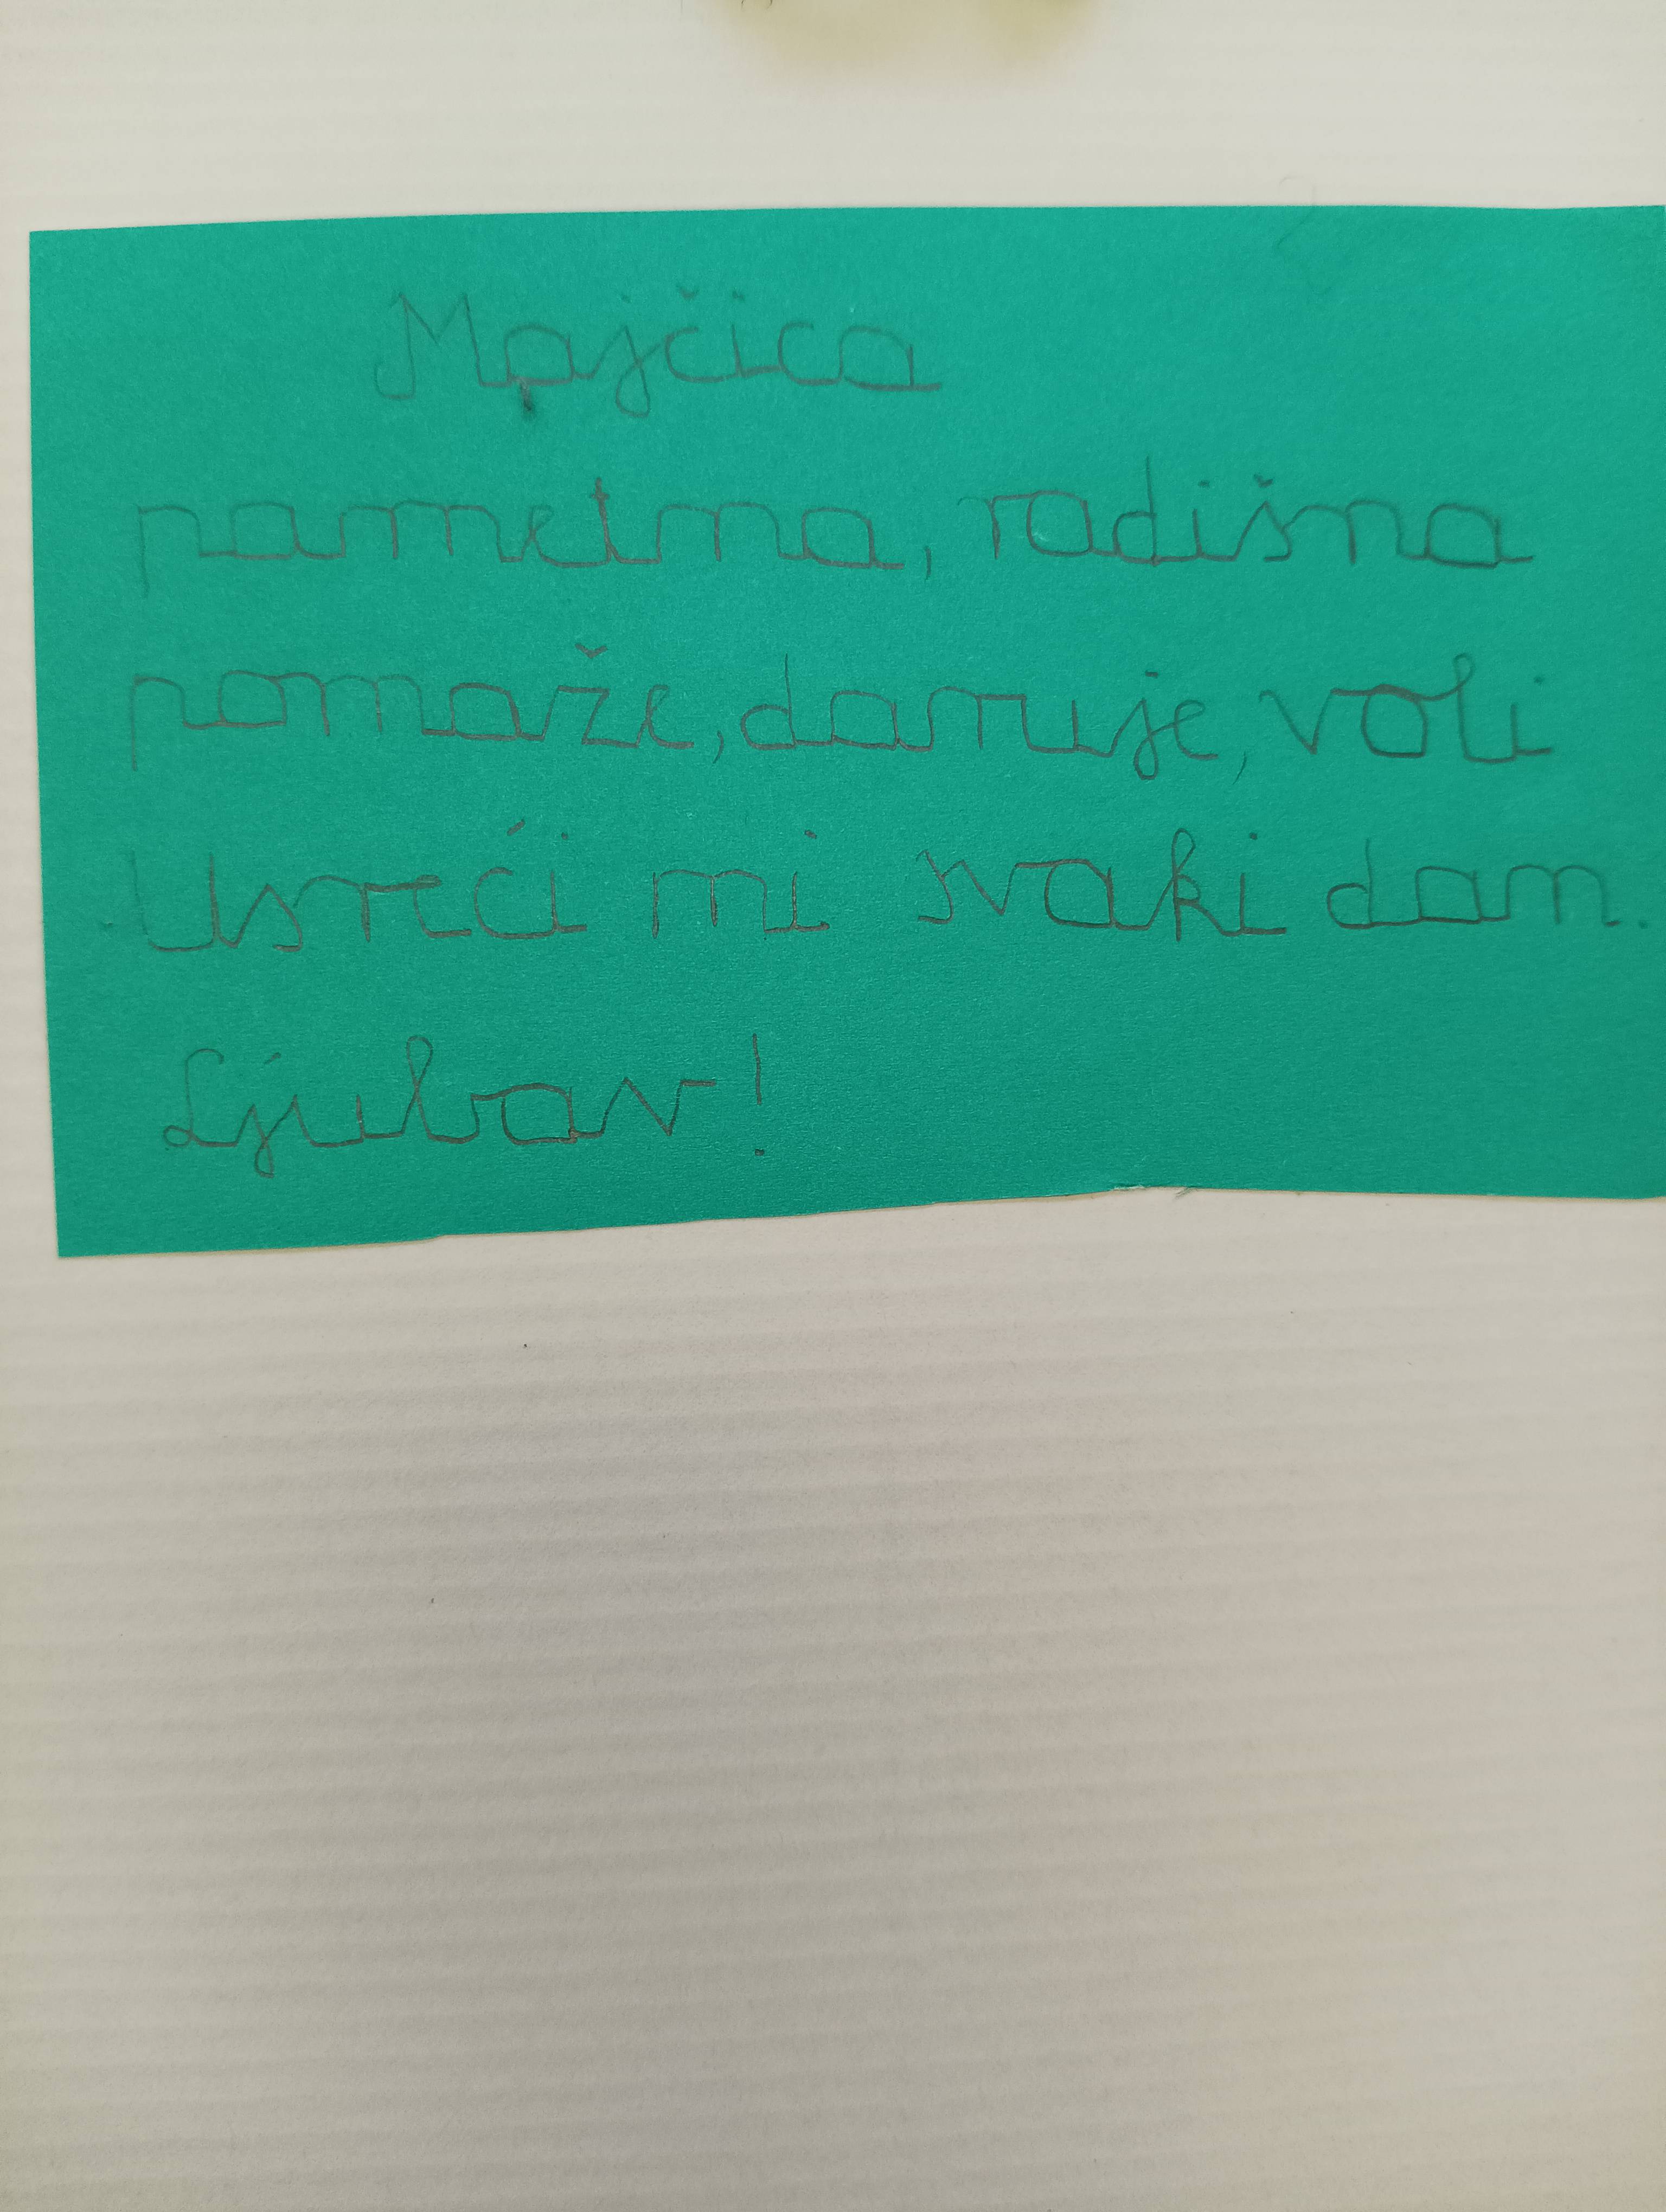 Majčica
pametna, radišna
pomaže, daruje, voli
Usreći mi svaki dan.
Ljubav!